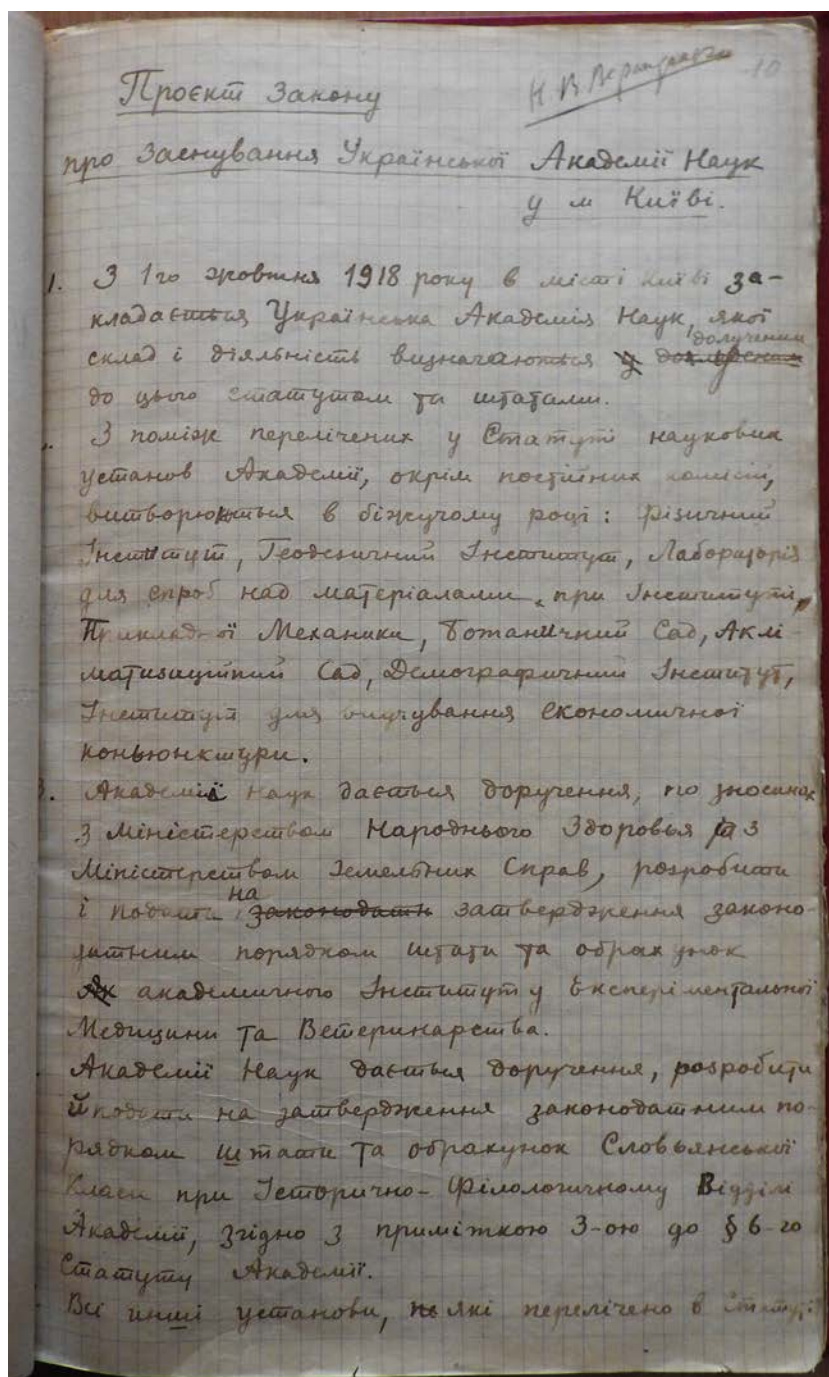 10
Проєкт Закону
про Заснування Української Академії Наук
у м Київі.
1. З 1го жовтня 1918 року в місті Київі за-
кладається Українська Академія Наук, якої
долученим
склад і діяльність визначаються у
до цього статутом та штатами.
З поміж перелічених у Статуті наукових
установ Академії, окрім постійних комісій,
витворюються в біжучому році: Фізичний
Інститут, Геодезичний Інститут, Лабораторія
для спроб над матеріалами при Інституті
Прикладної Механики, Ботаничний Сад, Аклі-
матизаційний Сад, Демографичний Інститут,
Інститут для вивчування економичної
коньюнктури.
3. Академії наук дається доручення, по зносинах
з Міністерством Народнього Здоровья та з
Міністерством Земельних Справ, розробити
на
і подати законодатн затвердження законо-
датним порядком штати та обрахунок
академичного Інституту Експеріментальної
Медицини та Ветеринарства.
Академії Наук дається доручення, розробити
й подати на затвердження законодатним по-
рядком штати та обрахунок Словьянської
Класи при Історично-Філологичному Відділі
Академії, згідно з приміжкою 3-ою до § 6-го
Статуту Академії.
Всі инші установи, які перелічено в Статуті